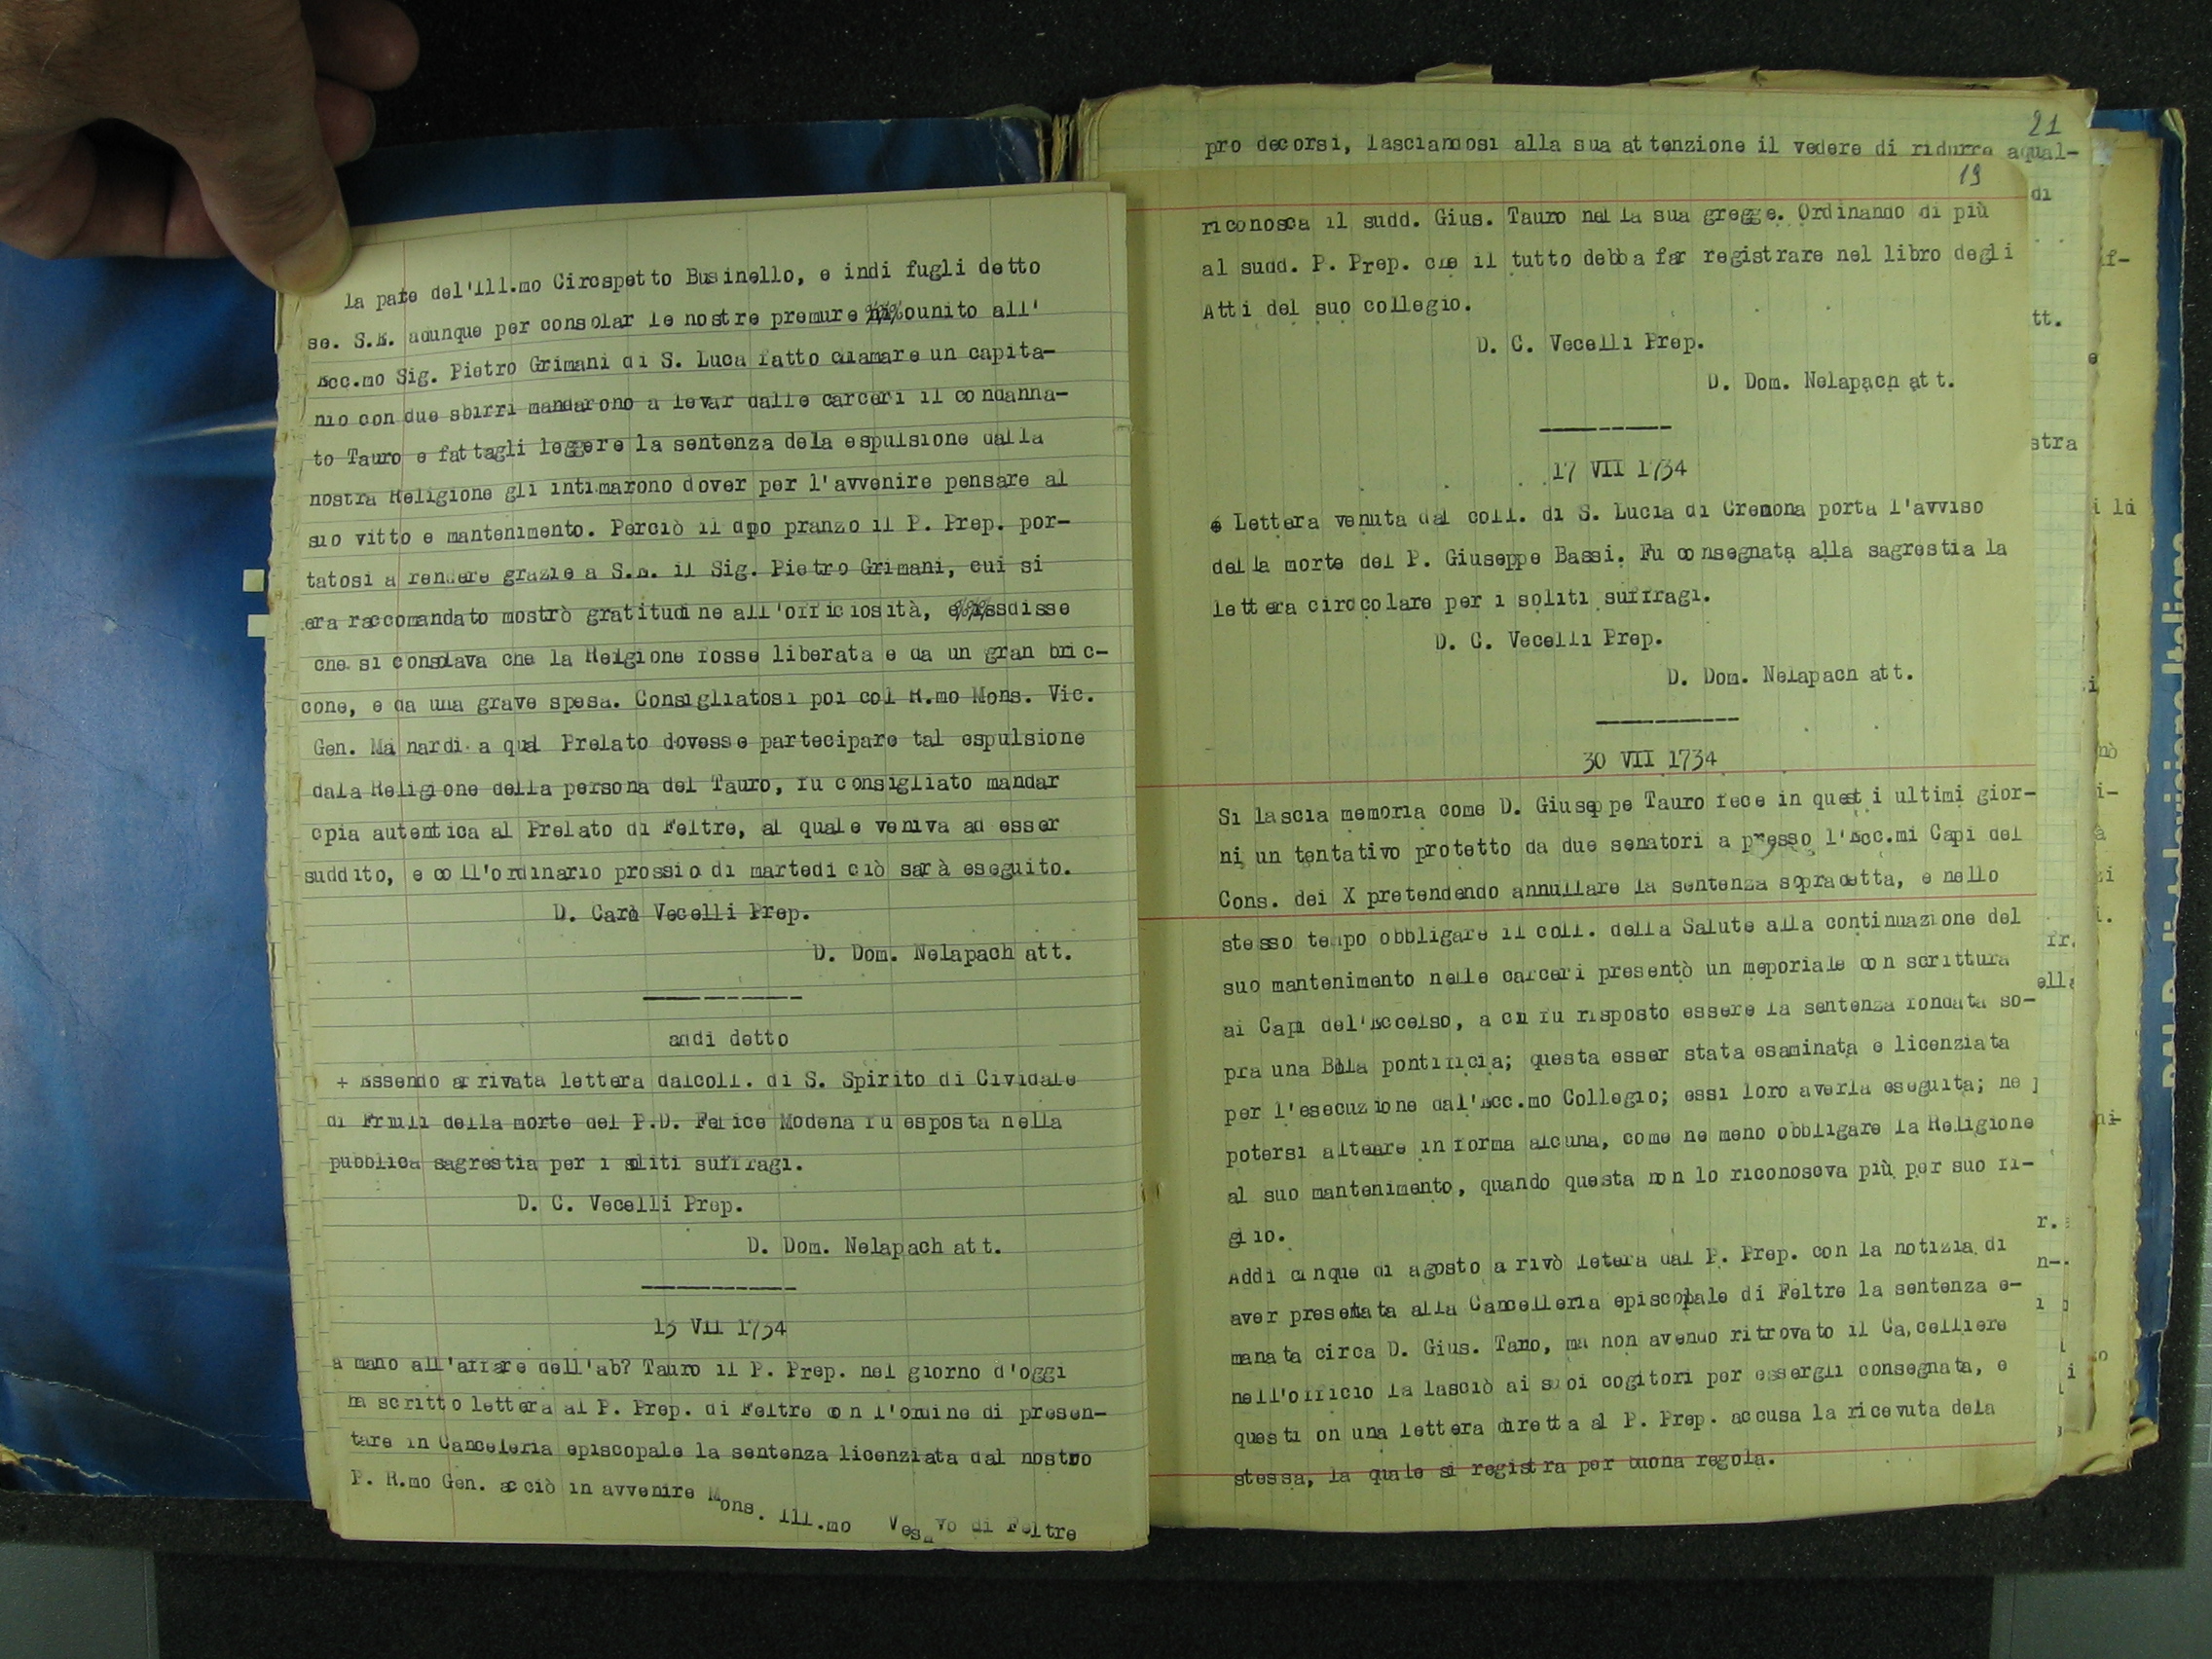 la pate del'Ill.mo Circspetto Businello, e indi fugli detto
se. S.E. adunque per consolar le nostre premure ounito all'
Ecc.mo Sig. Pietro Grimani di S. Luca fatto chiamare un capita-
nio con due sbirri mandarono a levar dalle carceri il condanna-
to Tauro e fattagli leggere la sentenza dela espulsione dalla
nostra Religione gli intimarono dover per l'avvenire pensare al
suo vitto e mantenimento. Perciò il dpo pranzo il P. Prep. por-
tatosi a rendere grazie a S.E. il Sig. Pietro Grimani, cui si
era raccomandato mostrò gratitudine all'officiosità, disse
che si consolava che la Religione fosse liberata e da un gran bric-
cone, e da una grave spesa. Consigliatosi poi col R.mo Mons. Vic.
Gen. Mainardi a qual Prelato dovesse partecipare tal espulsione
dala Religione della persona del Tauro, fu consigliato mandar
cpia autentica al Prelato di Feltre, al quale veniva ad esser
suddito, e coll'ordinario prossio di martedi ciò sarà eseguito.
D. Carlo Vecelli Prep.
D. Dom. Nelapach att.
andi detto
+ Essendo arrivata lettera dalcoll. di S. Spirito di Cividale
di Friuli della morte del P.D. Felice Modena fu esposta nella
pubblica sagrestia per i soliti suffragi.
D. C. Vecelli Prep.
D. Dom. Nelapach att.
13 VII 1734
a mano all'affare dell'ab? Tauro il P. Prep. nel giorno d'oggi
ha scritto lettera al P. Prep. di Feltre con l'ordine di presen-
tare in Canceleria episcopale la sentenza licenziata dal nostro
P. R.mo Gen. acciò in avvenire Mons. Ill.mo Vescvo di Feltre
21
pro decorsi, lasciandosi alla sua attenzione il vedere di ridurre aqual-
19
riconosca il sudd. Gius. Tauro nella sua gregge. Ordinando di più
al sudd. P. Prep. che il tutto debba far registrare nel libro degli
Atti del suo collegio.
D. C. Vecelli Prep.
D. Dom. Nelapach att.
17 VII 1734
Lettera venuta dal coll. di S. Lucia di Cremona porta l'avviso
della morte del P. Giuseppe Bassi. Fu consegnata alla sagrestia la
lettera circolare per i soliti suffragi.
D. C. Vecelli Prep.
D. Dom. Nelapach att.
30 VII 1734
Si lascia memoria come D. Giuseppe Tauro fece in questi ultimi gior-
ni un tentativo protetto da due senatori a presso l'Ecc.mi Capi del
Cons. dei X pretendendo annullare la sentenza sopradetta, e nello
stesso tempo obbligare il coll. della Salute alla continuazione del
suo mantenimento nelle carceri presentò un meporiale con scrittura
ai Capi del'Eccelso, a cui fu risposto essere la sentenza fondata so-
pra una Bolla pontificia; questa esser stata esaminata e licenziata
per l'esecuzione dal'Ecc.mo Collegio; essi loro averla eseguita; ne
potersi alterare in forma alcuna, come ne meno obbligare la Religione
al suo mantenimento, quando questa non lo riconosova più per suo fi-
glio.
Addi cinque di agosto arivò letera dal P. Prep. con la notizia di
aver presentata alla Cancelleria episcopale di Feltre la sentenza e-
manata circa D. Gius. Tauro, ma non avendo ritrovato il Ca,celliere
nell'officio la lasciò ai suoi cogitori per essergli consegnata, e
questi on una lettera diretta al P. Prep. accusa la ricevuta dela
stessa, la quale si registra per buona regola.